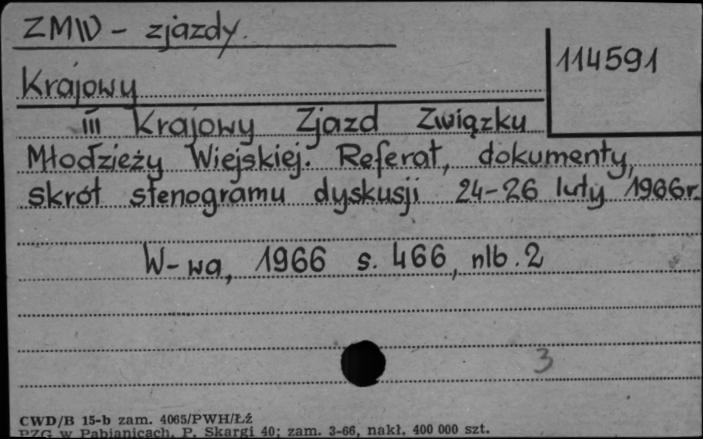 ZMW - zjazdy.
114591
Krajowy
III Krajowy Zjazd Związku
Młodzieży Wiejskiej. Referat, dokumenty,
skrót stenogramu dyskusji 24-26 luty 1966r.
W-wa, 1966 s. 466, nlb. 2
3
CWD/B 15-b zam. 4065/PWH/Łź
PZG w Pabianicach, P. Skargi 40; zam. 3-66, nakł. 400 000 szt.